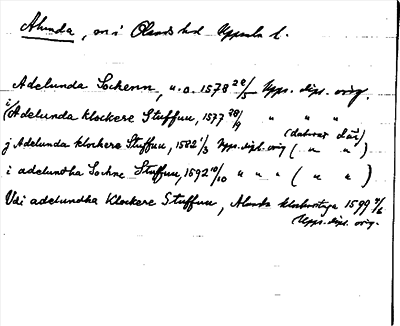 Alunda, sn i Olands hd Uppsala l.
Adelunda Sockenn, u.o. 1578 28/5 Upps. dipl. orig.
i Adelunda klockere Stuffuu, 1577 28/9 " " "
(daterat där)
j Adelunda klockere Stuffuu, 1582 1/3 Upps. dipl. orig ( " " )
i adelundha Sochne Stuffuu, 1592 10/10 " " " ( " " )
Vdi adelundha Klockere Stuffuu, Alunda klockarstuga 1599 9/6
Upps. dipl. orig.